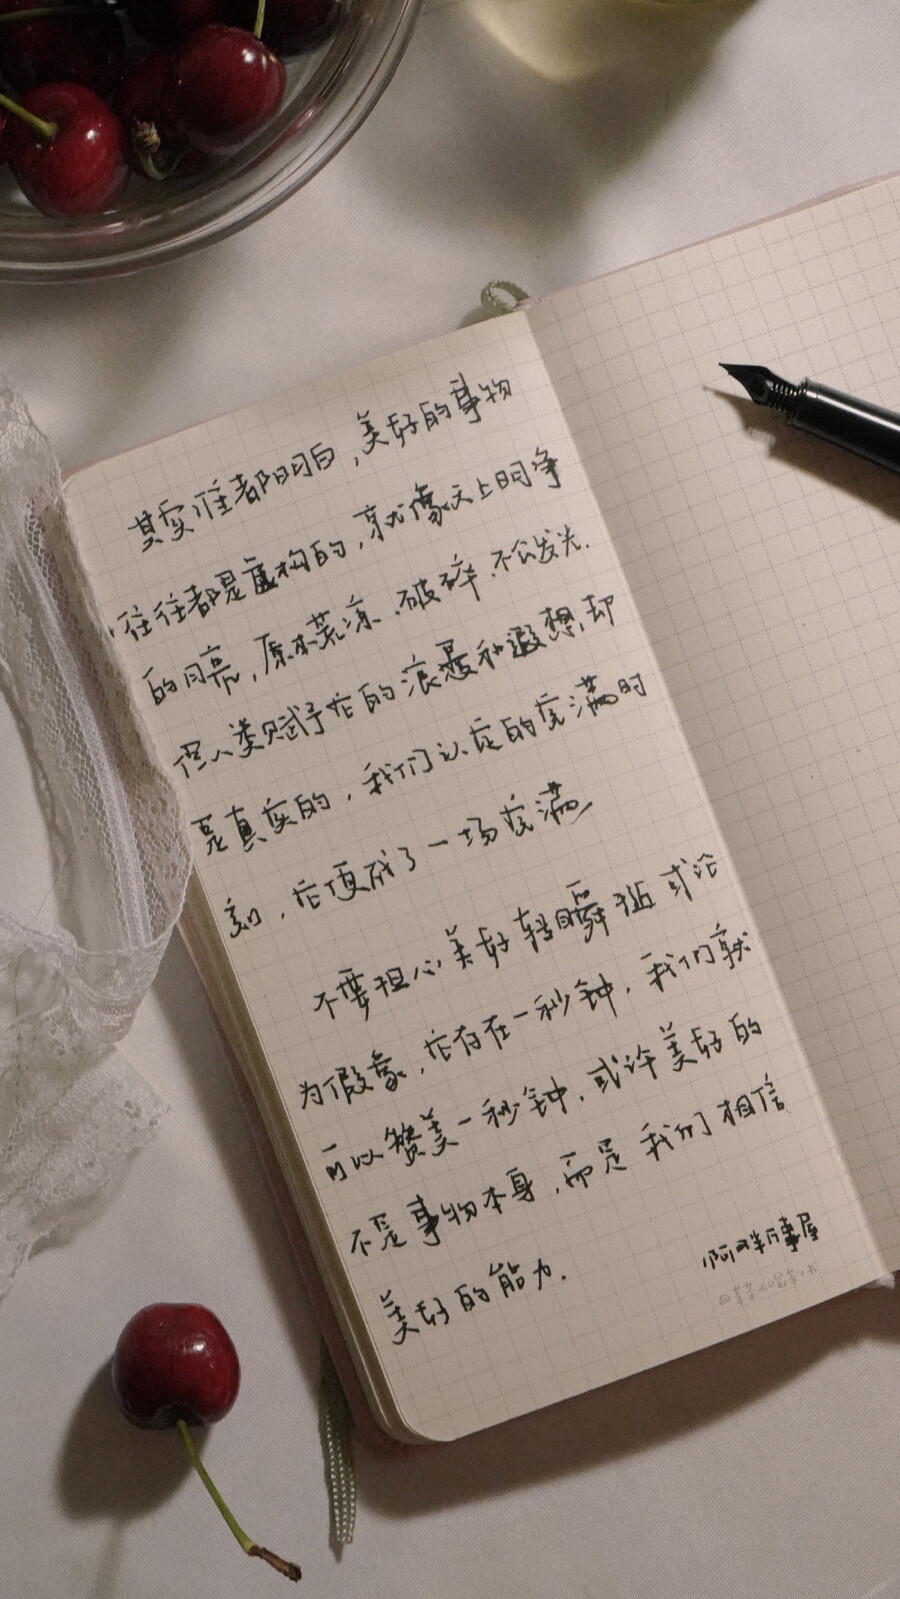 其实谁都明白,美好的事物
往往都是虚构的,就像天上明净
的月亮,原本荒凉、破碎、不会发光.
但人类赋予它的浪漫和遐想,却
是真实的,我们认定的完满时
刻,它便成了一场完满
不要担心美好转瞬 或沦
为假象,它存在一秒钟,我们就
可以赞美一秒钟,或许美好的
不是事物本身,而是我们相信
美好的能力.